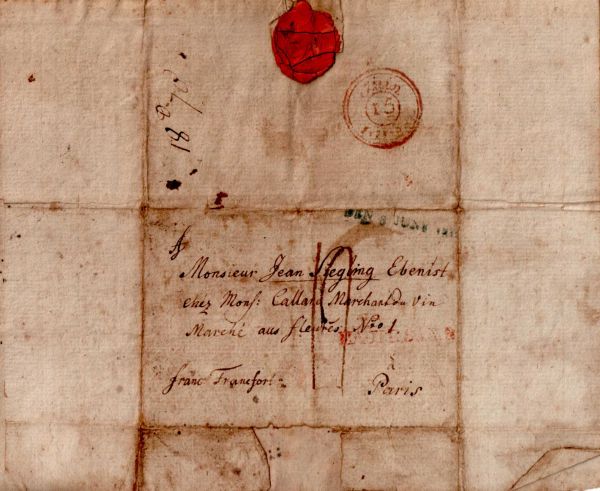 JUIN
15
DEN 8 JUNI
A
Monsieur Jean Siegling Ebenist
chez Mons: Calland Marchant du Vin
Marché aus fleures Nro 1.
franc Francfort
Paris